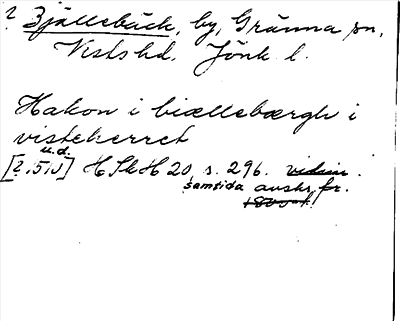 ? Bjällebäck, by, Gränna sn,
Vists hd. Jönk. l.
Hakon i biællebærgh i
visteherret
u.d.
[?. 510] HSkH 20, s. 296. vidim.
samtida avskr. fr.